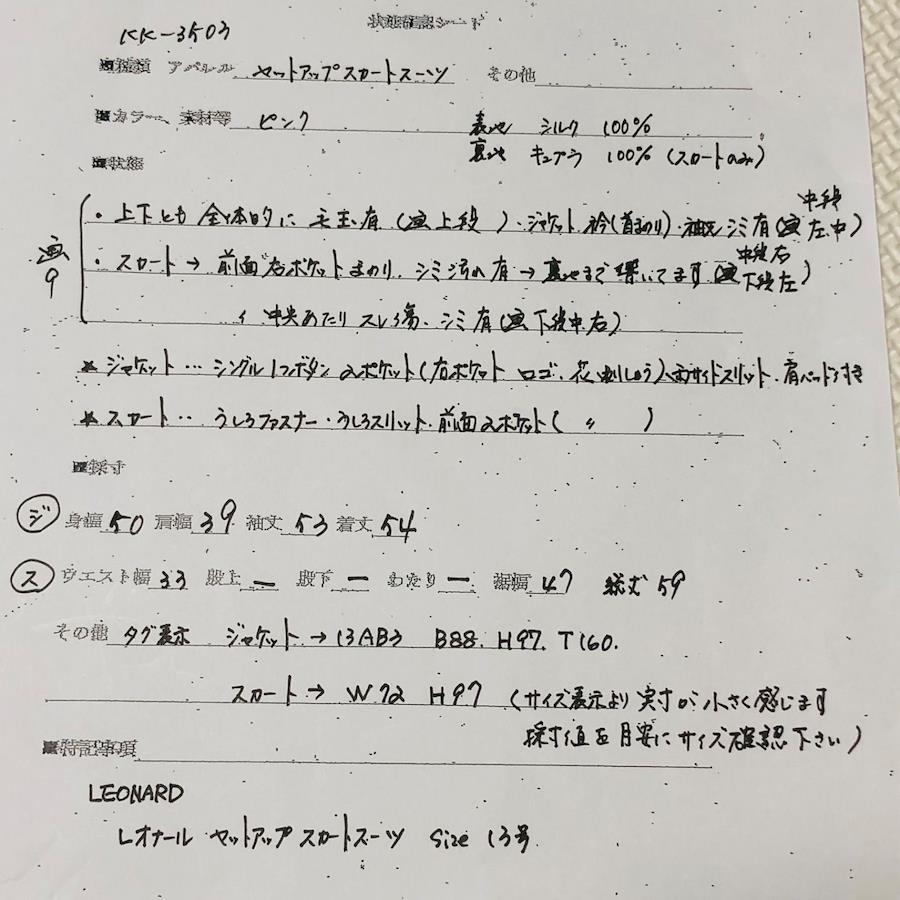 状態確認シート
KK-3503
■種類 アパレル セットアップスカートスーツ その他
■カラー、素材等 ピンク 表地 シルク 100%
裏地 キュプラ 100% (スカートのみ)
■状態
画9
・上下とも 全体的に 毛玉有 (画上段 )・ジャケット 衿(首まわり)・袖先シミ有(画中段左、中)
・スカート→ 前面右ポケットまわり、シミ汚れ有→裏地まで響いてます(画中段右下段左)
〃 中央あたり スレ傷、シミ有(画下段中、右)
* ジャケット… シングル1つボタン 2ポケット(右ポケット ロゴ、花刺しゅう)、両サイドスリット、肩パット付き
* スカート… うしろファスナー・うしろスリット・前面2ポケット( 〃 )
■採寸
ジ 身幅 50 肩幅 39 袖丈 53 着丈 54
ス ウエスト幅 33 股上 ー 股下 ー わたり ー 裾幅 47 総丈 59
その他 タグ表示 ジャケット→13AB3 B88. H97. T160.
スカート→ W72 H97 (サイズ表示より 実寸が小さく感じます
採寸値を目安にサイズ確認下さい)
■特記事項
LEONARD
レオナール セットアップスカートスーツ size 13号